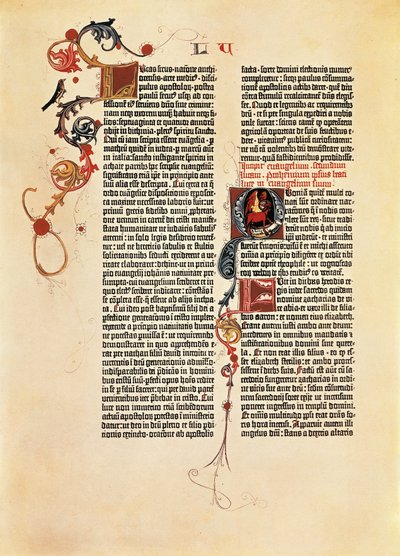 L U
Lucas sirus natione anthi-
ocensis: arte medic9: disci-
pulus apostolorū: postea
paulū secut9 usq; ad con-
fessionē ei9 serviens dño sine crimine:
nam neq; uxorem unq̄ habuit neq; fi-
lios: septuaginta et quatuor annorū
obijt in bithinia: plen9 spiritu sancto.
Qui cū iam scripta essent evāgelia · p
matheū quidē in iudea · p marcū aūt
in italia: sancto instigante spiritu in
achaie partib9 hoc scripsit evāgeliū:
significans eciā ipe in principio ante
suū alia esse descripta. Cui extra ea q̄
ordo evāgelice disposicionis exposcit
ea maxime necessitas laboris fuit: ut
primū grecis fidelib9 omni prophetati-
one venturi in carnē dei cristi manifesta
humanitate ne iudaicis fabulis
attenti: in solo legis desiderio tenerēt-
tur: vel ne hereticis fabulis et stultis
solicitationib9 seducti excideret a ve-
ritate elaboraret: dehinc ut in princi-
pio evangelij iohānis nativitate pre-
sumpta · cui evangelium scriberet et in
quo elect9 scriberet indicaret: cōtestās ī
se cōpleta esse · q̄ essent ab alijs inchoa-
ta. Cui ideo post baptismū filij dei a
pfectione generacionis ī cristo implete ·
repetende a principio nativitatis huma-
ne potestas pmissa ē: ut requirentib9
demonstraret in quo apprehendēs e-
rat per nathan filiū david introitu re-
currentis ī deū generacionis admisso ·
indispartibilis dei p̄dicās in homini-
bus cristū suū · pfecti opus hoīs redire
in se p filiū faceret: qui per david patrē
venientibus iter p̄bebat in cristo. Cui
luce non immerito eciā scribendorū
actuū apostolorū potestas ī ministerio
datur: ut deo in deū pleno et filio pdi-
tionis extincto · oratione ab apostolis
facta · sorte domini electionis numer9
compleretur: sicq; paulus cōsumma-
cionē apostolicis actib9 daret · quē diu
contra stimulū recalcitrantē dñs elegis-
set. Quod et legentib9 ac requirentib9
deū · et si per singula expediri a nobis
utile fuerat: sciens tamē q̄ operantē
agricolā oporteat de suis fructib9 e-
dere · vitavim9 publicā curiositatem:
ne nō tā volentib9 deū demōstrare vide-
remur · quā fastidientib9 prodidisse.
Quoniā quidē multi co-
nati sunt ordinare nar-
rationes q̄ ī nobis com-
plete sūt rerū · sicut tradi-
derunt nobis qui ab inicio
ipi viderūt · et ministri
fuerūt sermonis: visū ē et michi assecuto
oīa a principio diligēter ex ordīe tibi
scribere optime theophile: ut cognoscas
eorū verborū de q̄bs erudit9 es veritatē.
Fuit in diebus herodis re-
gis iudee sacerdos quidam
nomine zacharias de vi-
ce abia · et uxor illi de filia-
bus aaron: et nomen eius elizabeth.
Erant autem iusti ambo ante deum:
incedentes in omnibus mandatis et
iustificationibus domini sine quere-
la. Et non erat illis filius · eo q̄ es-
set elizabeth sterilis: et ambo proces-
sissent ī dieb9 suis. Factū est aūt cū sa-
cerdotio fungeretur zacharias in ordi-
ne vicis sue ante deū: scdm cōsuetudi-
nem sacerdotij sorte exijt ut incensum
poneret ingressus in templū domini.
Et omnis multitudo ppli erat orās fo-
ris hora incensi. Apparuit autem illi
angelus dñi: stans a dextris altaris